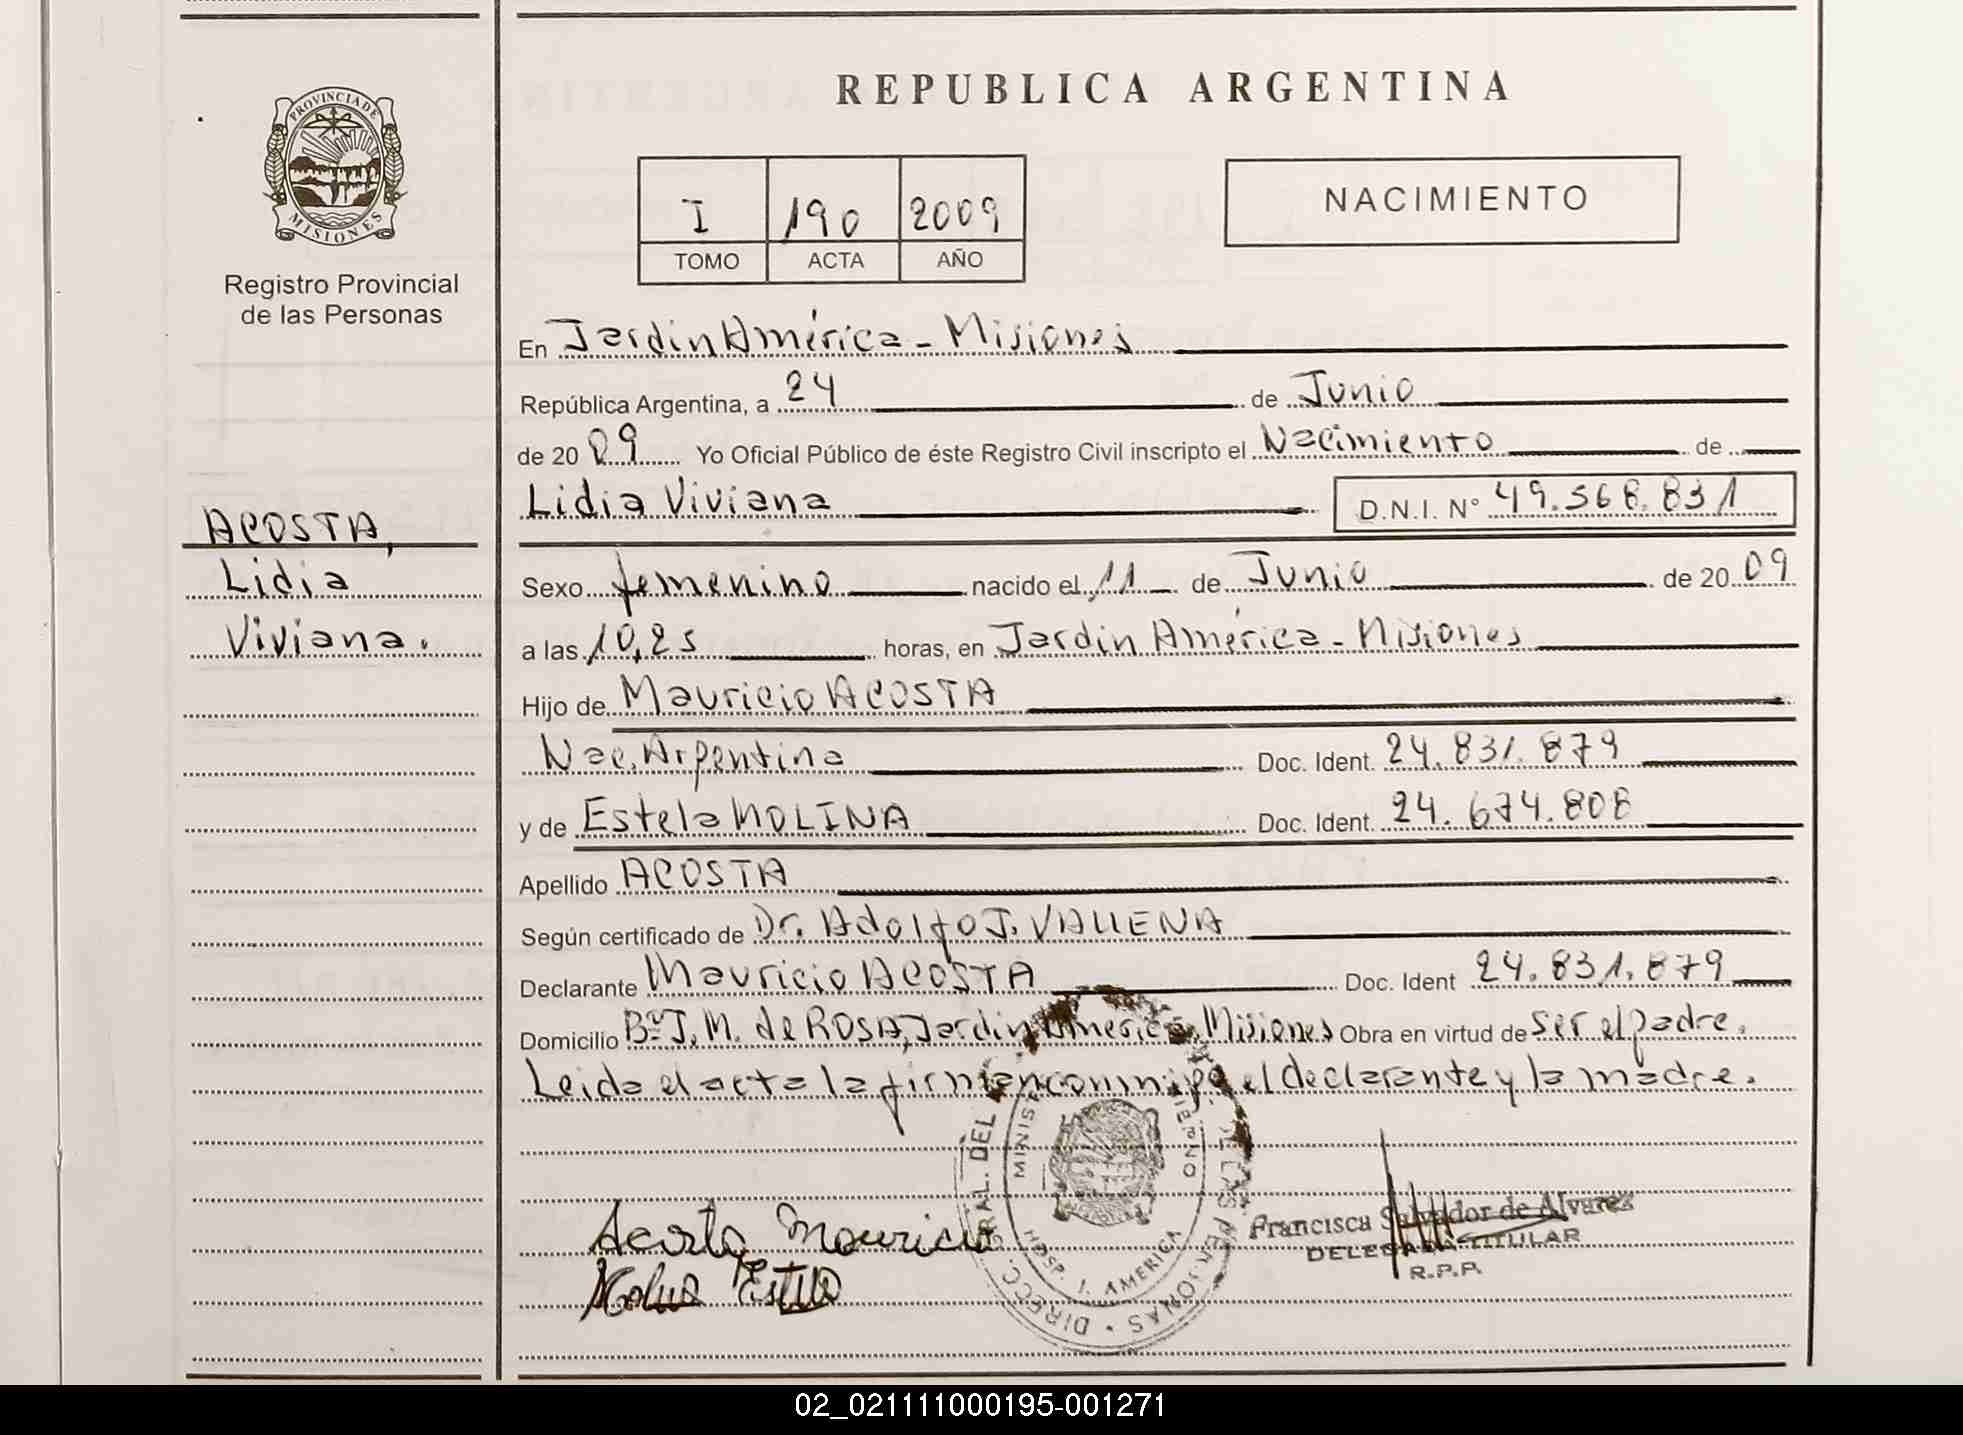 REPUBLICA ARGENTINA
PROVINCIA DE
MISIONES
Registro Provincial
de las Personas
I 190 2009
TOMO ACTA AÑO
NACIMIENTO
En Jardin América - Misiones
República Argentina, a 24 de Junio
de 2009 Yo Oficial Público de éste Registro Civil inscripto el Nacimiento de
Lidia Viviana D.N.I. Nº 49.568.831
ACOSTA,
Lidia
Viviana.
Sexo femenino nacido el 11 de Junio de 2009
a las 10,25 horas, en Jardin América - Misiones
Hijo de Mauricio ACOSTA
Nac. Argentina Doc. Ident. 24.831.879
y de Estela MOLINA Doc. Ident. 24.674.808
Apellido ACOSTA
Según certificado de Dr. Adolfo J. VALLENA
Declarante Mauricio ACOSTA Doc. Ident 24.831.879
Domicilio Bº J. M. de ROSA, Jardin América, Misiones Obra en virtud de ser el padre.
Leida el acta la firman conmigo el declarante y la madre.
Acosta Mauricio
Estela
DIRECC. GRAL. DEL DE LAS PERSONAS
HOSP. J. AMERICA
Francisca Salvador de Alvarez
DELEGADA TITULAR
R.P.P.
02_021111000195-001271